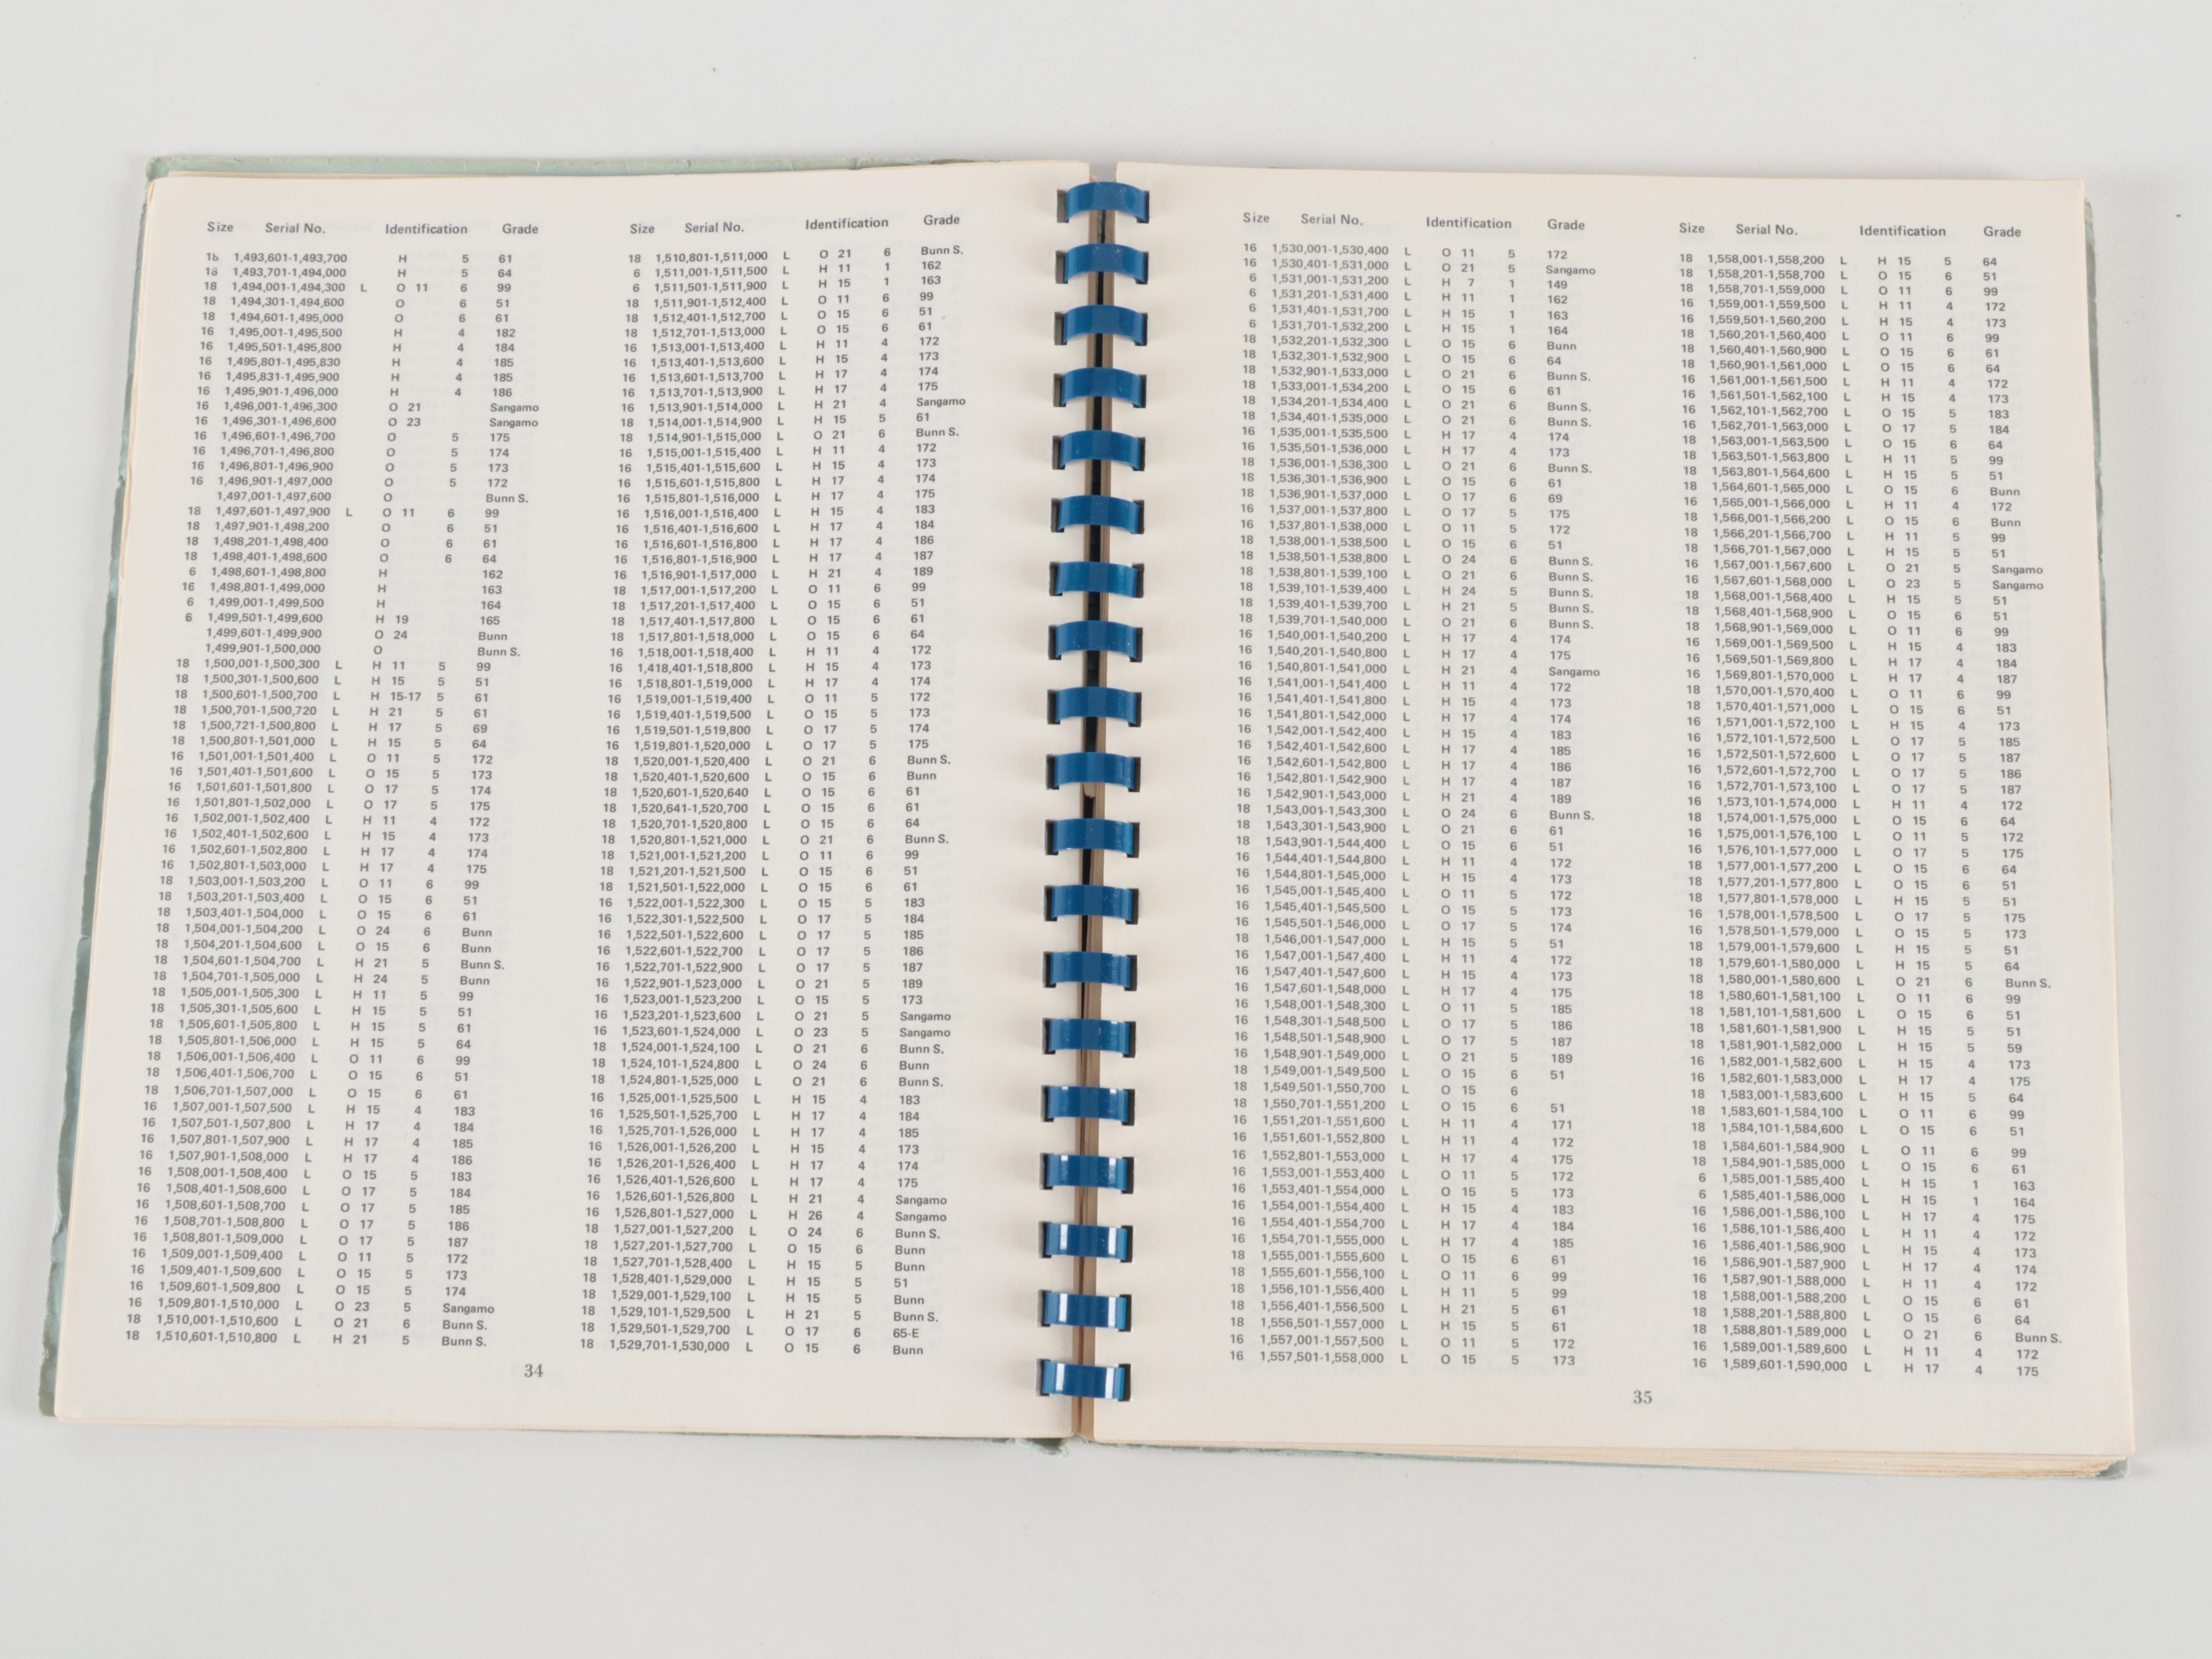 Size Serial No. Identification Grade
18 1,493,601-1,493,700 H 5 61
18 1,493,701-1,494,000 H 5 64
18 1,494,001-1,494,300 L O 11 6 99
18 1,494,301-1,494,600 O 6 51
18 1,494,601-1,495,000 O 6 61
16 1,495,001-1,495,500 H 4 182
16 1,495,501-1,495,800 H 4 184
16 1,495,801-1,495,830 H 4 185
16 1,495,831-1,495,900 H 4 185
16 1,495,901-1,496,000 H 4 186
16 1,496,001-1,496,300 O 21 Sangamo
16 1,496,301-1,496,600 O 23 Sangamo
16 1,496,601-1,496,700 O 5 175
16 1,496,701-1,496,800 O 5 174
16 1,496,801-1,496,900 O 5 173
16 1,496,901-1,497,000 O 5 172
1,497,001-1,497,600 O Bunn S.
18 1,497,601-1,497,900 L O 11 6 99
18 1,497,901-1,498,200 O 6 51
18 1,498,201-1,498,400 O 6 61
18 1,498,401-1,498,600 O 6 64
6 1,498,601-1,498,800 H 162
16 1,498,801-1,499,000 H 163
6 1,499,001-1,499,500 H 164
6 1,499,501-1,499,600 H 19 165
1,499,601-1,499,900 O 24 Bunn
1,499,901-1,500,000 O Bunn S.
18 1,500,001-1,500,300 L H 11 5 99
18 1,500,301-1,500,600 L H 15 5 51
18 1,500,601-1,500,700 L H 15-17 5 61
18 1,500,701-1,500,720 L H 21 5 61
18 1,500,721-1,500,800 L H 17 5 69
18 1,500,801-1,501,000 L H 15 5 64
16 1,501,001-1,501,400 L O 11 5 172
16 1,501,401-1,501,600 L O 15 5 173
16 1,501,601-1,501,800 L O 17 5 174
16 1,501,801-1,502,000 L O 17 5 175
16 1,502,001-1,502,400 L H 11 4 172
16 1,502,401-1,502,600 L H 15 4 173
16 1,502,601-1,502,800 L H 17 4 174
16 1,502,801-1,503,000 L H 17 4 175
18 1,503,001-1,503,200 L O 11 6 99
18 1,503,201-1,503,400 L O 15 6 51
18 1,503,401-1,504,000 L O 15 6 61
18 1,504,001-1,504,200 L O 24 6 Bunn
18 1,504,201-1,504,600 L O 15 6 Bunn
18 1,504,601-1,504,700 L H 21 5 Bunn S.
18 1,504,701-1,505,000 L H 24 5 Bunn
18 1,505,001-1,505,300 L H 11 5 99
18 1,505,301-1,505,600 L H 15 5 51
18 1,505,601-1,505,800 L H 15 5 61
18 1,505,801-1,506,000 L H 15 5 64
18 1,506,001-1,506,400 L O 11 6 99
18 1,506,401-1,506,700 L O 15 6 51
18 1,506,701-1,507,000 L O 15 6 61
16 1,507,001-1,507,500 L H 15 4 183
16 1,507,501-1,507,800 L H 17 4 184
16 1,507,801-1,507,900 L H 17 4 185
16 1,507,901-1,508,000 L H 17 4 186
16 1,508,001-1,508,400 L O 15 5 183
16 1,508,401-1,508,600 L O 17 5 184
16 1,508,601-1,508,700 L O 17 5 185
16 1,508,701-1,508,800 L O 17 5 186
16 1,508,801-1,509,000 L O 17 5 187
16 1,509,001-1,509,400 L O 11 5 172
16 1,509,401-1,509,600 L O 15 5 173
16 1,509,601-1,509,800 L O 15 5 174
16 1,509,801-1,510,000 L O 23 5 Sangamo
18 1,510,001-1,510,600 L O 21 6 Bunn S.
18 1,510,601-1,510,800 L H 21 5 Bunn S.
Size Serial No. Identification Grade
18 1,510,801-1,511,000 L O 21 6 Bunn S.
6 1,511,001-1,511,500 L H 11 1 162
6 1,511,501-1,511,900 L H 15 1 163
18 1,511,901-1,512,400 L O 11 6 99
18 1,512,401-1,512,700 L O 15 6 51
18 1,512,701-1,513,000 L O 15 6 61
16 1,513,001-1,513,400 L H 11 4 172
16 1,513,401-1,513,600 L H 15 4 173
16 1,513,601-1,513,700 L H 17 4 174
16 1,513,701-1,513,900 L H 17 4 175
16 1,513,901-1,514,000 L H 21 4 Sangamo
18 1,514,001-1,514,900 L H 15 5 61
18 1,514,901-1,515,000 L O 21 6 Bunn S.
16 1,515,001-1,515,400 L H 11 4 172
16 1,515,401-1,515,600 L H 15 4 173
16 1,515,601-1,515,800 L H 17 4 174
16 1,515,801-1,516,000 L H 17 4 175
16 1,516,001-1,516,400 L H 15 4 183
16 1,516,401-1,516,600 L H 17 4 184
16 1,516,601-1,516,800 L H 17 4 186
16 1,516,801-1,516,900 L H 17 4 187
16 1,516,901-1,517,000 L H 21 4 189
18 1,517,001-1,517,200 L O 11 6 99
18 1,517,201-1,517,400 L O 15 6 51
18 1,517,401-1,517,800 L O 15 6 61
18 1,517,801-1,518,000 L O 15 6 64
16 1,518,001-1,518,400 L H 11 4 172
16 1,418,401-1,518,800 L H 15 4 173
16 1,518,801-1,519,000 L H 17 4 174
16 1,519,001-1,519,400 L O 11 5 172
16 1,519,401-1,519,500 L O 15 5 173
16 1,519,501-1,519,800 L O 17 5 174
16 1,519,801-1,520,000 L O 17 5 175
18 1,520,001-1,520,400 L O 21 6 Bunn S.
18 1,520,401-1,520,600 L O 15 6 Bunn
18 1,520,601-1,520,640 L O 15 6 61
18 1,520,641-1,520,700 L O 15 6 61
18 1,520,701-1,520,800 L O 15 6 64
18 1,520,801-1,521,000 L O 21 6 Bunn S.
18 1,521,001-1,521,200 L O 11 6 99
18 1,521,201-1,521,500 L O 15 6 51
18 1,521,501-1,522,000 L O 15 6 61
16 1,522,001-1,522,300 L O 15 5 183
16 1,522,301-1,522,500 L O 17 5 184
16 1,522,501-1,522,600 L O 17 5 185
16 1,522,601-1,522,700 L O 17 5 186
16 1,522,701-1,522,900 L O 17 5 187
16 1,522,901-1,523,000 L O 21 5 189
16 1,523,001-1,523,200 L O 15 5 173
16 1,523,201-1,523,600 L O 21 5 Sangamo
16 1,523,601-1,524,000 L O 23 5 Sangamo
18 1,524,001-1,524,100 L O 21 6 Bunn S.
18 1,524,101-1,524,800 L O 24 6 Bunn
18 1,524,801-1,525,000 L O 21 6 Bunn S.
16 1,525,001-1,525,500 L H 15 4 183
16 1,525,501-1,525,700 L H 17 4 184
16 1,525,701-1,526,000 L H 17 4 185
16 1,526,001-1,526,200 L H 15 4 173
16 1,526,201-1,526,400 L H 17 4 174
16 1,526,401-1,526,600 L H 17 4 175
16 1,526,601-1,526,800 L H 21 4 Sangamo
16 1,526,801-1,527,000 L H 26 4 Sangamo
18 1,527,001-1,527,200 L O 24 6 Bunn S.
18 1,527,201-1,527,700 L O 15 6 Bunn
18 1,527,701-1,528,400 L H 15 5 Bunn
18 1,528,401-1,529,000 L H 15 5 51
18 1,529,001-1,529,100 L H 15 5 Bunn
18 1,529,101-1,529,500 L H 21 5 Bunn S.
18 1,529,501-1,529,700 L O 17 6 65-E
18 1,529,701-1,530,000 L O 15 6 Bunn
34
Size Serial No. Identification Grade
16 1,530,001-1,530,400 L O 11 5 172
16 1,530,401-1,531,000 L O 21 5 Sangamo
6 1,531,001-1,531,200 L H 7 1 149
6 1,531,201-1,531,400 L H 11 1 162
6 1,531,401-1,531,700 L H 15 1 163
6 1,531,701-1,532,200 L H 15 1 164
18 1,532,201-1,532,300 L O 15 6 Bunn
18 1,532,301-1,532,900 L O 15 6 64
18 1,532,901-1,533,000 L O 21 6 Bunn S.
18 1,533,001-1,534,200 L O 15 6 61
18 1,534,201-1,534,400 L O 21 6 Bunn S.
18 1,534,401-1,535,000 L O 21 6 Bunn S.
16 1,535,001-1,535,500 L H 17 4 174
16 1,535,501-1,536,000 L H 17 4 173
18 1,536,001-1,536,300 L O 21 6 Bunn S.
18 1,536,301-1,536,900 L O 15 6 61
18 1,536,901-1,537,000 L O 17 6 69
16 1,537,001-1,537,800 L O 17 5 175
16 1,537,801-1,538,000 L O 11 5 172
18 1,538,001-1,538,500 L O 15 6 51
18 1,538,501-1,538,800 L O 24 6 Bunn S.
18 1,538,801-1,539,100 L O 21 6 Bunn S.
18 1,539,101-1,539,400 L H 24 5 Bunn S.
18 1,539,401-1,539,700 L H 21 5 Bunn S.
18 1,539,701-1,540,000 L O 21 6 Bunn S.
16 1,540,001-1,540,200 L H 17 4 174
16 1,540,201-1,540,800 L H 17 4 175
16 1,540,801-1,541,000 L H 21 4 Sangamo
16 1,541,001-1,541,400 L H 11 4 172
16 1,541,401-1,541,800 L H 15 4 173
16 1,541,801-1,542,000 L H 17 4 174
16 1,542,001-1,542,400 L H 15 4 183
16 1,542,401-1,542,600 L H 17 4 185
16 1,542,601-1,542,800 L H 17 4 186
16 1,542,801-1,542,900 L H 17 4 187
16 1,542,901-1,543,000 L H 21 4 189
18 1,543,001-1,543,300 L O 24 6 Bunn S.
18 1,543,301-1,543,900 L O 21 6 61
18 1,543,901-1,544,400 L O 15 6 51
16 1,544,401-1,544,800 L H 11 4 172
16 1,544,801-1,545,000 L H 15 4 173
16 1,545,001-1,545,400 L O 11 5 172
16 1,545,401-1,545,500 L O 15 5 173
16 1,545,501-1,546,000 L O 17 5 174
18 1,546,001-1,547,000 L H 15 5 51
16 1,547,001-1,547,400 L H 11 4 172
16 1,547,401-1,547,600 L H 15 4 173
16 1,547,601-1,548,000 L H 17 4 175
16 1,548,001-1,548,300 L O 11 5 185
16 1,548,301-1,548,500 L O 17 5 186
16 1,548,501-1,548,900 L O 17 5 187
16 1,548,901-1,549,000 L O 21 5 189
18 1,549,001-1,549,500 L O 15 6 51
18 1,549,501-1,550,700 L O 15 6
18 1,550,701-1,551,200 L O 15 6 51
16 1,551,201-1,551,600 L H 11 4 171
16 1,551,601-1,552,800 L H 11 4 172
16 1,552,801-1,553,000 L H 17 4 175
16 1,553,001-1,553,400 L O 11 5 172
16 1,553,401-1,554,000 L O 15 5 173
16 1,554,001-1,554,400 L H 15 4 183
16 1,554,401-1,554,700 L H 17 4 184
16 1,554,701-1,555,000 L H 17 4 185
18 1,555,001-1,555,600 L O 15 6 61
18 1,555,601-1,556,100 L O 11 6 99
18 1,556,101-1,556,400 L H 11 5 99
18 1,556,401-1,556,500 L H 21 5 61
18 1,556,501-1,557,000 L H 15 5 61
16 1,557,001-1,557,500 L O 11 5 172
16 1,557,501-1,558,000 L O 15 5 173
Size Serial No. Identification Grade
18 1,558,001-1,558,200 L H 15 5 64
18 1,558,201-1,558,700 L O 15 6 51
18 1,558,701-1,559,000 L O 11 6 99
16 1,559,001-1,559,500 L H 11 4 172
16 1,559,501-1,560,200 L H 15 4 173
18 1,560,201-1,560,400 L O 11 6 99
18 1,560,401-1,560,900 L O 15 6 61
18 1,560,901-1,561,000 L O 15 6 64
16 1,561,001-1,561,500 L H 11 4 172
16 1,561,501-1,562,100 L H 15 4 173
16 1,562,101-1,562,700 L O 15 5 183
16 1,562,701-1,563,000 L O 17 5 184
18 1,563,001-1,563,500 L O 15 6 64
18 1,563,501-1,563,800 L H 11 5 99
18 1,563,801-1,564,600 L H 15 5 51
18 1,564,601-1,565,000 L O 15 6 Bunn
16 1,565,001-1,566,000 L H 11 4 172
18 1,566,001-1,566,200 L O 15 6 Bunn
18 1,566,201-1,566,700 L H 11 5 99
18 1,566,701-1,567,000 L H 15 5 51
16 1,567,001-1,567,600 L O 21 5 Sangamo
16 1,567,601-1,568,000 L O 23 5 Sangamo
18 1,568,001-1,568,400 L H 15 5 51
18 1,568,401-1,568,900 L O 15 6 51
18 1,568,901-1,569,000 L O 11 6 99
16 1,569,001-1,569,500 L H 15 4 183
16 1,569,501-1,569,800 L H 17 4 184
16 1,569,801-1,570,000 L H 17 4 187
18 1,570,001-1,570,400 L O 11 6 99
18 1,570,401-1,571,000 L O 15 6 51
16 1,571,001-1,572,100 L H 15 4 173
16 1,572,101-1,572,500 L O 17 5 185
16 1,572,501-1,572,600 L O 17 5 187
16 1,572,601-1,572,700 L O 17 5 186
16 1,572,701-1,573,100 L O 17 5 187
16 1,573,101-1,574,000 L H 11 4 172
18 1,574,001-1,575,000 L O 15 6 64
16 1,575,001-1,576,100 L O 11 5 172
16 1,576,101-1,577,000 L O 17 5 175
18 1,577,001-1,577,200 L O 15 6 64
18 1,577,201-1,577,800 L O 15 6 51
18 1,577,801-1,578,000 L H 15 5 51
16 1,578,001-1,578,500 L O 17 5 175
16 1,578,501-1,579,000 L O 15 5 173
18 1,579,001-1,579,600 L H 15 5 51
18 1,579,601-1,580,000 L H 15 5 64
18 1,580,001-1,580,600 L O 21 6 Bunn S.
18 1,580,601-1,581,100 L O 11 6 99
18 1,581,101-1,581,600 L O 15 6 51
18 1,581,601-1,581,900 L H 15 5 51
18 1,581,901-1,582,000 L H 15 5 59
16 1,582,001-1,582,600 L H 15 4 173
16 1,582,601-1,583,000 L H 17 4 175
18 1,583,001-1,583,600 L H 15 5 64
18 1,583,601-1,584,100 L O 11 6 99
18 1,584,101-1,584,600 L O 15 6 51
18 1,584,601-1,584,900 L O 11 6 99
18 1,584,901-1,585,000 L O 15 6 61
6 1,585,001-1,585,400 L H 15 1 163
6 1,585,401-1,586,000 L H 15 1 164
16 1,586,001-1,586,100 L H 17 4 175
16 1,586,101-1,586,400 L H 11 4 172
16 1,586,401-1,586,900 L H 15 4 173
16 1,586,901-1,587,900 L H 17 4 174
16 1,587,901-1,588,000 L H 11 4 172
18 1,588,001-1,588,200 L O 15 6 61
18 1,588,201-1,588,800 L O 15 6 64
18 1,588,801-1,589,000 L O 21 6 Bunn S.
16 1,589,001-1,589,600 L H 11 4 172
16 1,589,601-1,590,000 L H 17 4 175
35